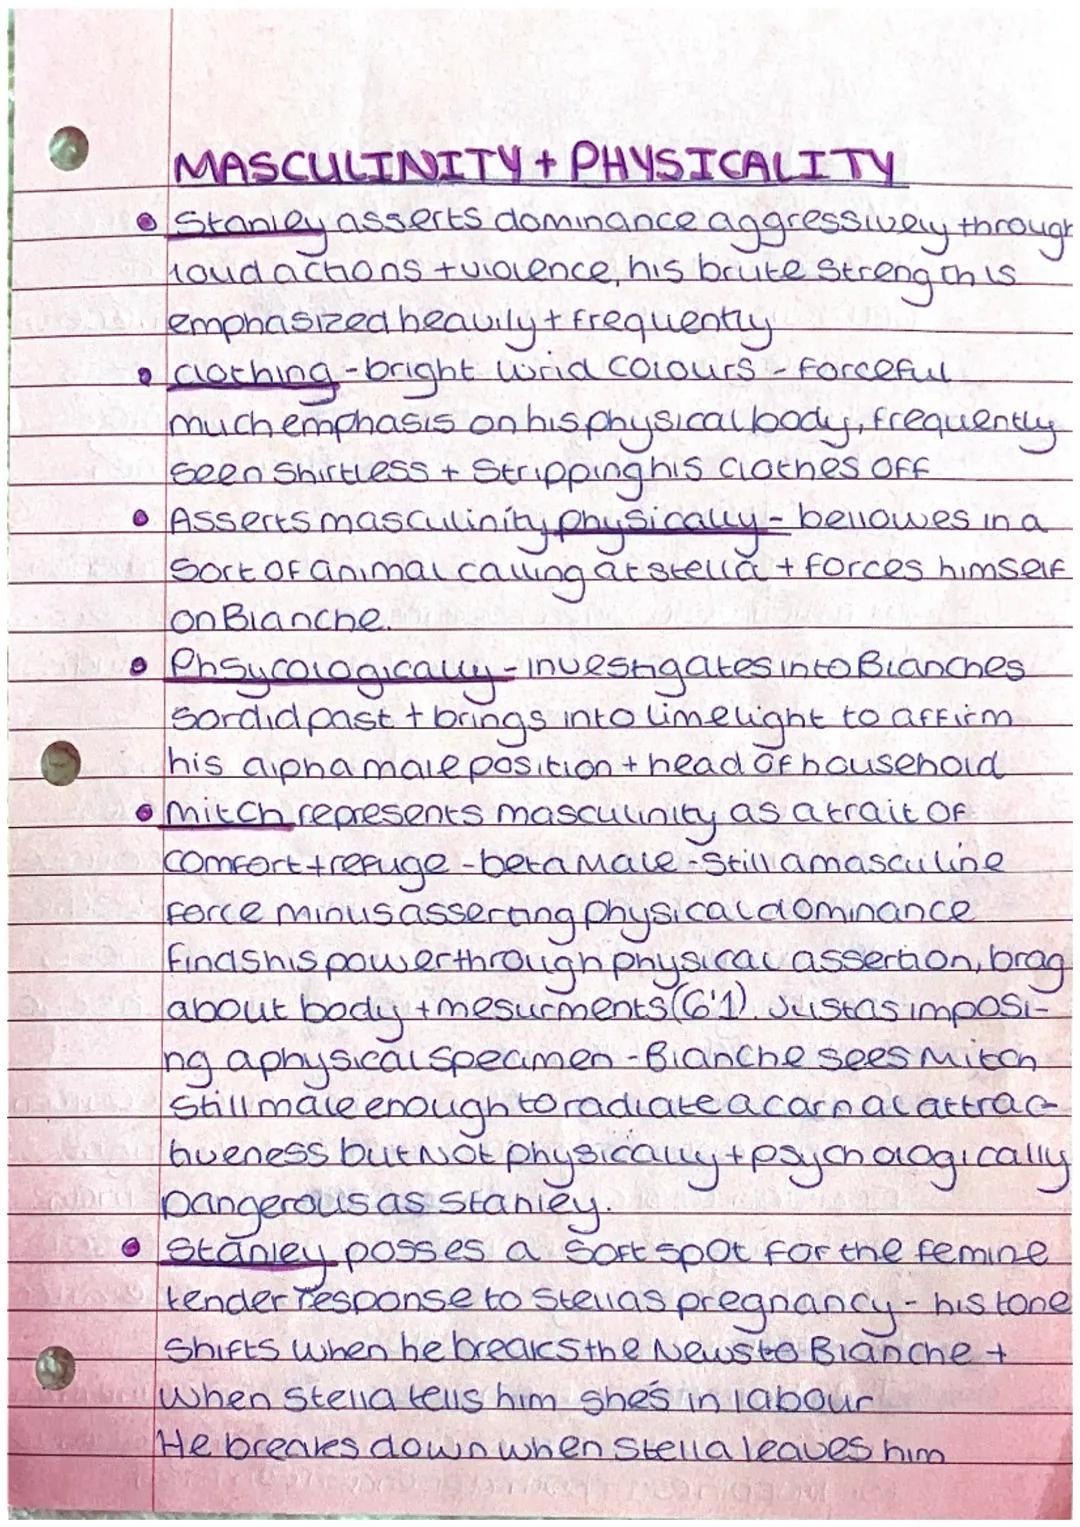 MASCULINITY + PHYSICALITY
Stanley asserts dominance aggressively through
loud actions + violence, his brute strength is
emphasized heavily + frequently
clothing - bright lurid colours - forceful
much emphasis on his physical body, frequently
seen shirtless + stripping his clothes off
Asserts masculinity physically - bellowes in a
sort of animal calling at stella + forces himself
on Blanche.
Phsycologically - investigates into Blanches
sordid past + brings into limelight to affirm
his alpha male position + head of household
Mitch represents masculinity as a trait of
comfort + refuge - beta Male - still a masculine
force minus asserting physical dominance
finds his power through physical assertion, brag
about body + mesurments (6'1). Just as imposi-
ng a physical specimen - Blanche sees Mitch
still male enough to radiate a carnal attrac-
tiveness but Not physically + psychologically
Dangerous as Stanley.
Stanley posses a soft spot for the femine
tender response to Stellas pregnancy - his tone
shifts when he breaks the News to Blanche +
when Stella tells him she's in labour
He breakes down when Stella leaves him